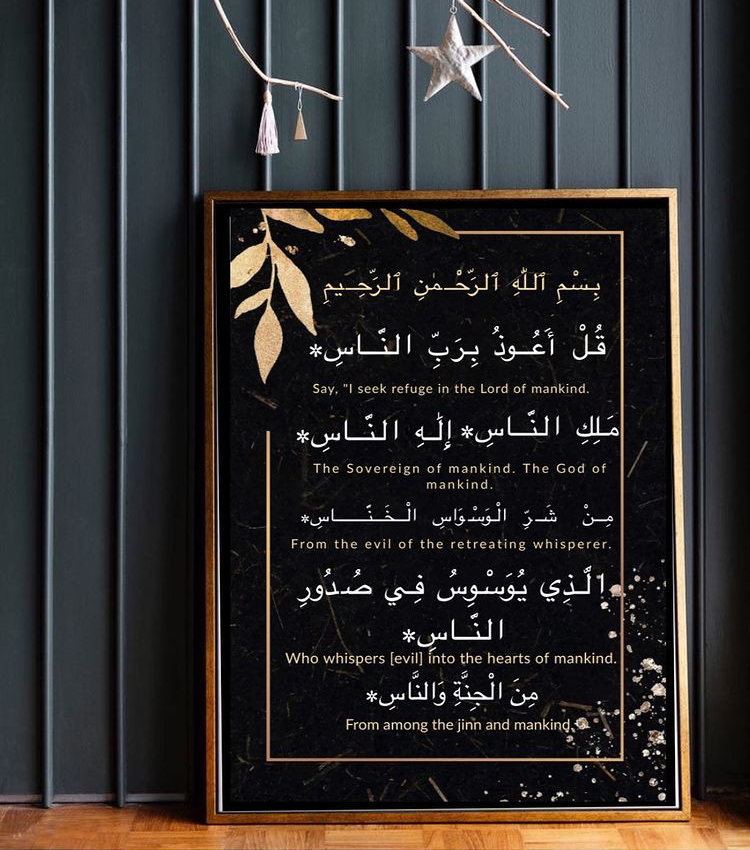 بِسْمِ ٱللّٰهِ ٱلرَّحْمٰنِ ٱلرَّحِيمِ
قُلْ أَعُوذُ بِرَبِّ النَّاسِ*
Say, "I seek refuge in the Lord of mankind.
مَلِكِ النَّاسِ* إِلَٰهِ النَّاسِ*
The Sovereign of mankind. The God of
mankind.
مِنْ شَرِّ الْوَسْوَاسِ الْخَنَّاسِ*
From the evil of the retreating whisperer.
الَّذِي يُوَسْوِسُ فِي صُدُورِ
النَّاسِ*
Who whispers [evil] into the hearts of mankind.
مِنَ الْجِنَّةِ وَالنَّاسِ*
From among the jinn and mankind.